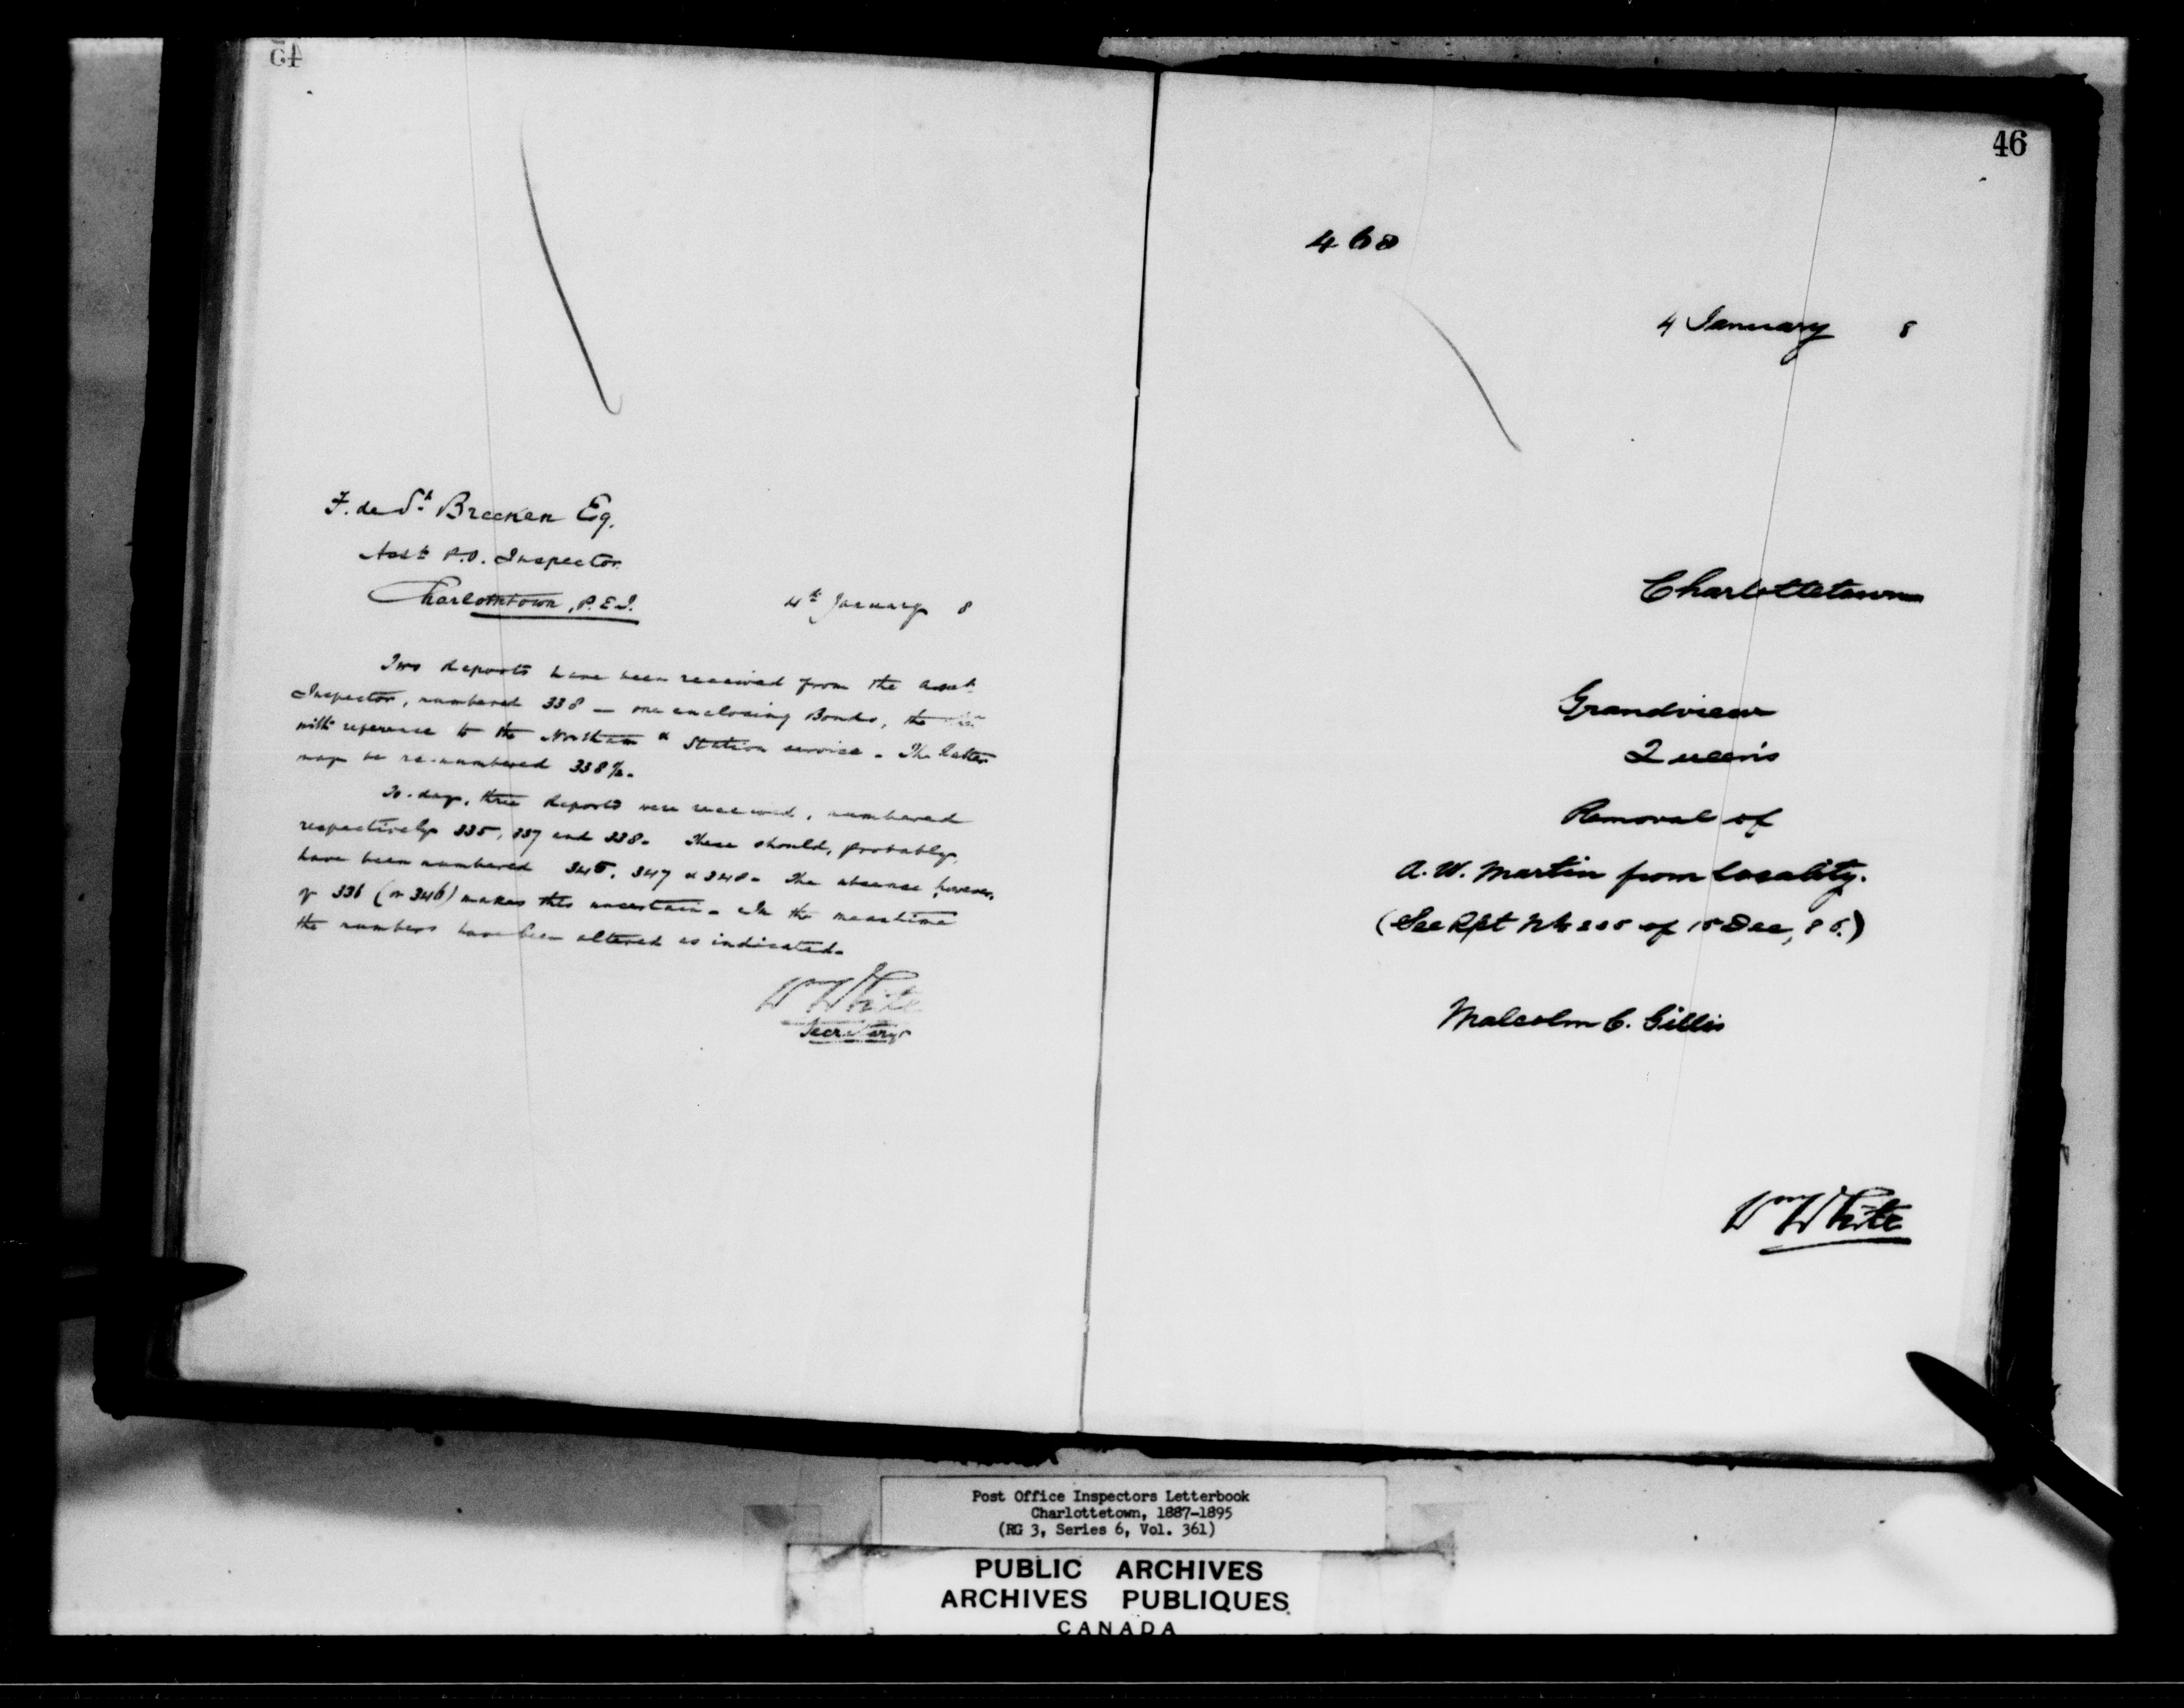 45
F. de St Brecken Eq.
Asst P.O. Inspector
Charlottetown, P.E.I.
4th January 8
Two Reports have been received from the Asst
Inspector, numbered 338 — one enclosing Bonds, the
with reference to the Northam & Station service. The latter
may be re-numbered 338½.
To-day, three Reports were received, numbered
respectively 335, 337 and 338. These should, probably,
have been numbered 345, 347 & 348. The absence however,
of 336 (or 346) makes this uncertain. In the meantime
the numbers have been altered as indicated.
Wm White
Secretary
46
468
4 January 8
Charlottetown
Grandview
Queen's
Removal of
A. W. Martin from locality.
(See Rpt No of 15 Dec,
Malcolm C. Gillis
Wm White
Post Office Inspectors Letterbook
Charlottetown, 1887-1895
(RG 3, Series 6, Vol. 361)
PUBLIC ARCHIVES
ARCHIVES PUBLIQUES
CANADA